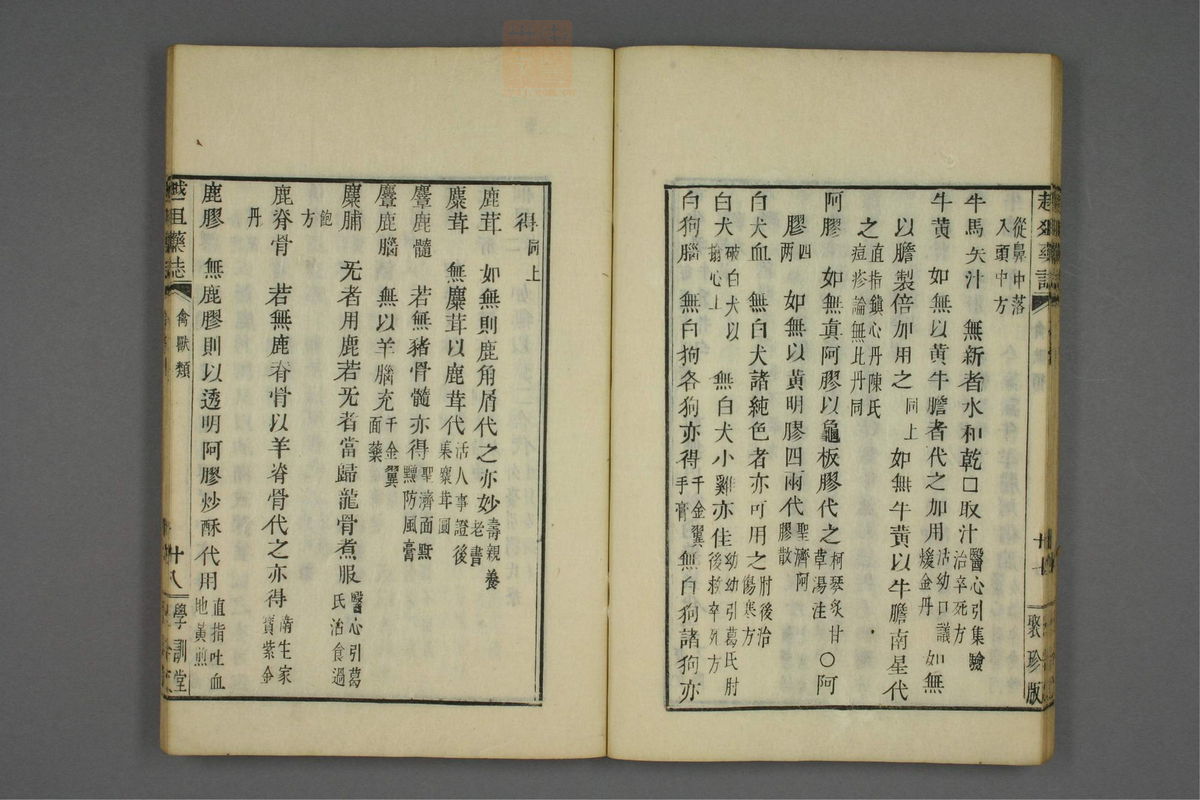 從鼻中落
入頭中方
牛馬矢汁　無新者水和乾口取汁醫心引集驗
治卒死方
牛黃　如無以黃牛膽者代之加用活幼口議
煖金丹如無
以膽製倍加用之同上如無牛黃以牛膽南星代
之直指鎮心丹陳氏
痘疹論無此丹同
阿膠　如無真阿膠以龜板膠代之柯琴炙甘
草湯注〇阿
膠四
兩　如無以黃明膠四兩代聖濟阿
膠散
白犬血　無白犬諸純色者亦可用之肘後治
傷寒方
白犬破白犬以
搨心上　無白犬小雞亦佳幼幼引葛氏肘
後救卒死方
白狗腦　無白狗各狗亦得千金翼
手膏無白狗諸狗亦
廿七
聚珍版
得同上
鹿茸　如無則鹿角屑代之亦妙壽親養
老書
麋茸　無麋茸以鹿茸代活人事證後
集麋茸圓
麞鹿髓　若無豬骨髓亦得聖濟面䵟
䵳防風膏
麞鹿腦　無以羊腦充千金翼
面藥
麋脯　无者用鹿若无者當歸龍骨煮服醫心引葛
氏治食過
飽
方
鹿脊骨　若無鹿脊骨以羊脊骨代之亦得衛生家
寶紫金
丹
鹿膠　無鹿膠則以透明阿膠炒酥代用直指吐血
地黃煎
越俎藥誌
禽獸類
十八
學訓堂